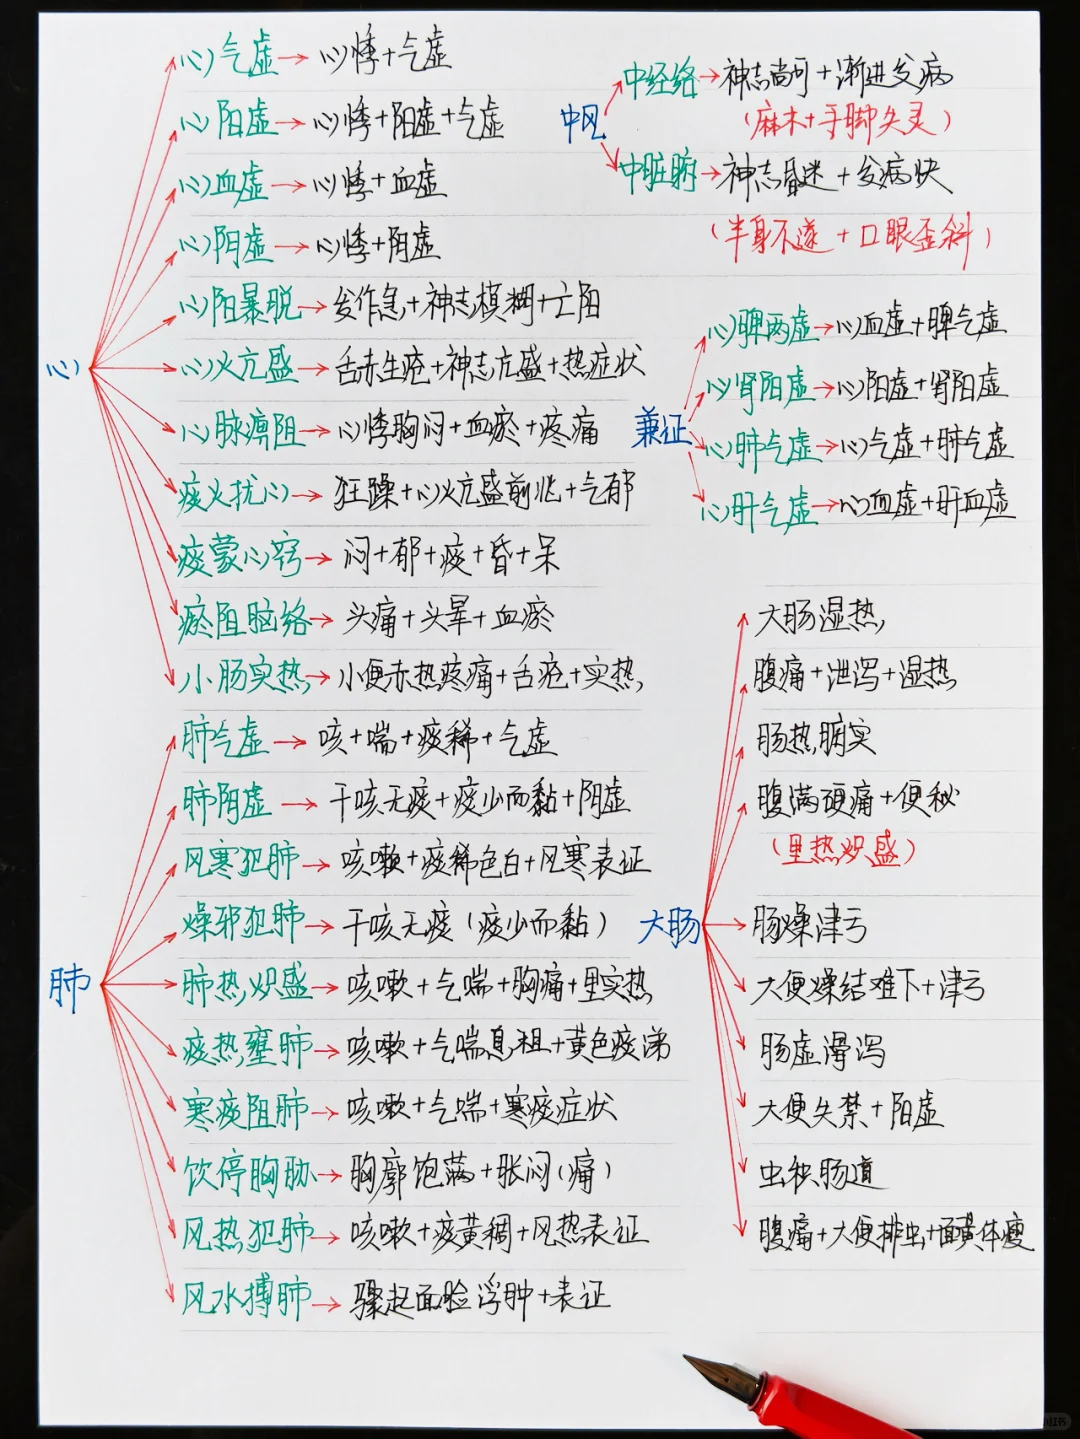 心
心气虚→心悸+气虚
心阳虚→心悸+阳虚+气虚
心血虚→心悸+血虚
心阴虚→心悸+阴虚
心阳暴脱→发作急+神志模糊+亡阳
心火亢盛→舌赤生疮+神志亢盛+热症状
心脉痹阻→心悸胸闷+血瘀+疼痛
痰火扰心→狂躁+心火亢盛前兆+气郁
痰蒙心窍→闷+郁+痰+昏+呆
瘀阻脑络→头痛+头晕+血瘀
小肠实热→小便赤热疼痛+舌疮+实热
肺
肺气虚→咳+喘+痰稀+气虚
肺阴虚→干咳无痰+痰少而黏+阴虚
风寒犯肺→咳嗽+痰稀色白+风寒表证
燥邪犯肺→干咳无痰(痰少而黏)
肺热炽盛→咳嗽+气喘+胸痛+里实热
痰热壅肺→咳嗽+气喘息粗+黄色痰涕
寒痰阻肺→咳嗽+气喘+寒痰症状
饮停胸胁→胸廓饱满+胀闷(痛)
风热犯肺→咳嗽+痰黄稠+风热表证
风水搏肺→骤起面睑浮肿+表证
中风
中经络→神志尚可+渐进发病
(麻木+手脚失灵)
中脏腑→神志昏迷+发病快
(半身不遂+口眼歪斜)
兼证
心脾两虚→心血虚+脾气虚
心肾阳虚→心阳虚+肾阳虚
心肺气虚→心气虚+肺气虚
心肝气虚→心血虚+肝血虚
大肠
大肠湿热
腹痛+泄泻+湿热
肠热腑实
腹满硬痛+便秘
(里热炽盛)
肠燥津亏
大便燥结难下+津亏
肠虚滑泻
大便失禁+阳虚
虫积肠道
腹痛+大便排虫+面黄体瘦